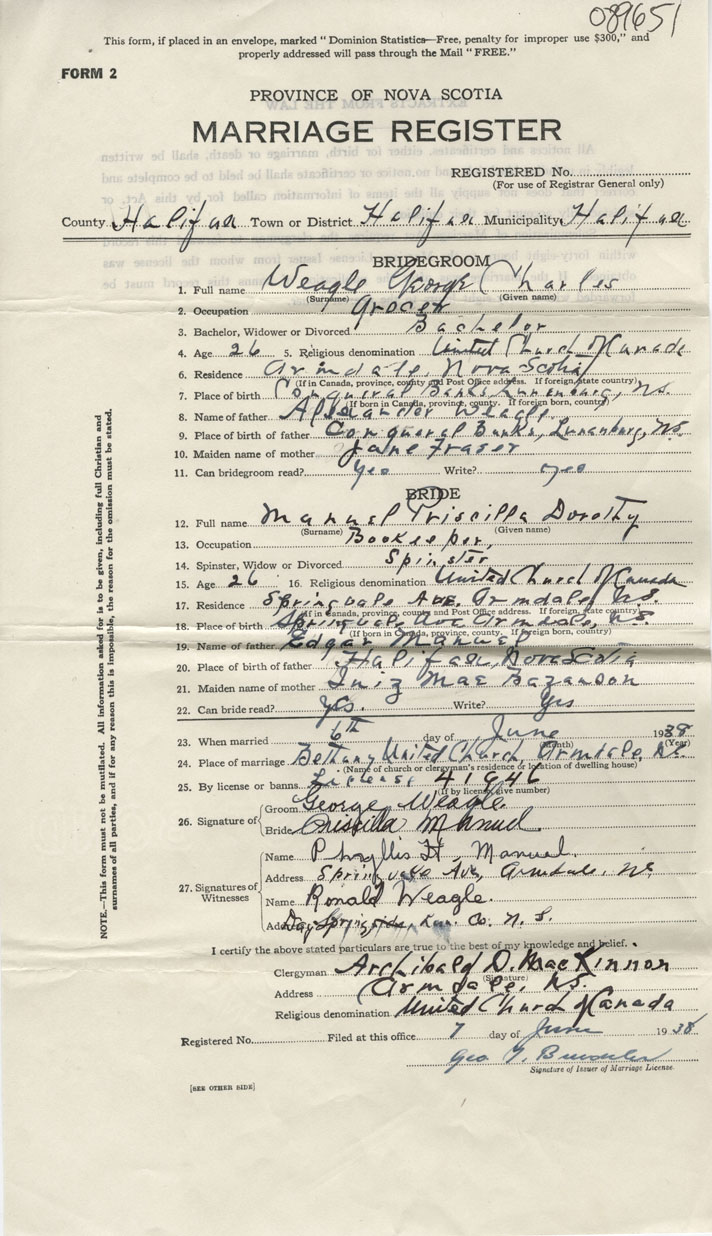 089651
This form, if placed in an envelope, marked "Dominion Statistics—Free, penalty for improper use $300," and
properly addressed will pass through the Mail "FREE."
FORM 2
PROVINCE OF NOVA SCOTIA
MARRIAGE REGISTER
REGISTERED No.
(For use of Registrar General only)
County Halifax Town or District Halifax Municipality Halifax
BRIDEGROOM
1. Full name Weagle George Charles
(Surname) (Given name)
2. Occupation Grocer
3. Bachelor, Widower or Divorced Bachelor
4. Age 26 5. Religious denomination United Church of Canada
6. Residence Armdale, Nova Scotia
(If in Canada, province, county and Post Office address. If foreign, state country)
7. Place of birth Conqueral Banks, Lunenburg, NS.
(If born in Canada, province, county. If foreign born, country)
8. Name of father Alexander Weagle.
9. Place of birth of father Conqueral Banks, Lunenburg, NS.
10. Maiden name of mother Jane Fraser
11. Can bridegroom read? Yes Write? yes
BRIDE
12. Full name Manuel Priscilla Dorothy
(Surname) (Given name)
13. Occupation Bookeeper,
14. Spinster, Widow or Divorced Spinster
15. Age 26 16. Religious denomination United Church of Canada
17. Residence Springvale Ave. Armdale, NS.
(If in Canada, province, county and Post Office address. If foreign, state country)
18. Place of birth Springvale Ave Armdale, NS.
(If born in Canada, province, county. If foreign born, country)
19. Name of father Edgar Manuel
20. Place of birth of father Halifax, Nova Scotia
21. Maiden name of mother Iniz Mae Bazanson
22. Can bride read? Yes. Write? Yes
23. When married 6th day of June 1938
(Month) (Year)
24. Place of marriage Bethany United Church Armdale, NS.
(Name of church or clergyman's residence or location of dwelling house)
25. By license or banns License 41946
(If by license, give number)
26. Signature of Groom George Weagle.
Bride Priscilla Manuel.
27. Signatures of Witnesses
Name Phyllis H. Manuel.
Address Springvale Ave, Armdale, NS
Name Ronald Weagle.
Address Day Springside, Lun. Co. N. S.
I certify the above stated particulars are true to the best of my knowledge and belief.
Clergyman Archibald D. MacKinnon
(Signature)
Address Armdale, NS.
Religious denomination United Church of Canada
Registered No. Filed at this office 7 day of June 1938
Geo
Signature of Issuer of Marriage License.
[SEE OTHER SIDE]
NOTE.—This form must not be mutilated. All information asked for is to be given, including full Christian and
surnames of all parties, and if for any reason this is impossible, the reason for the omission must be stated.